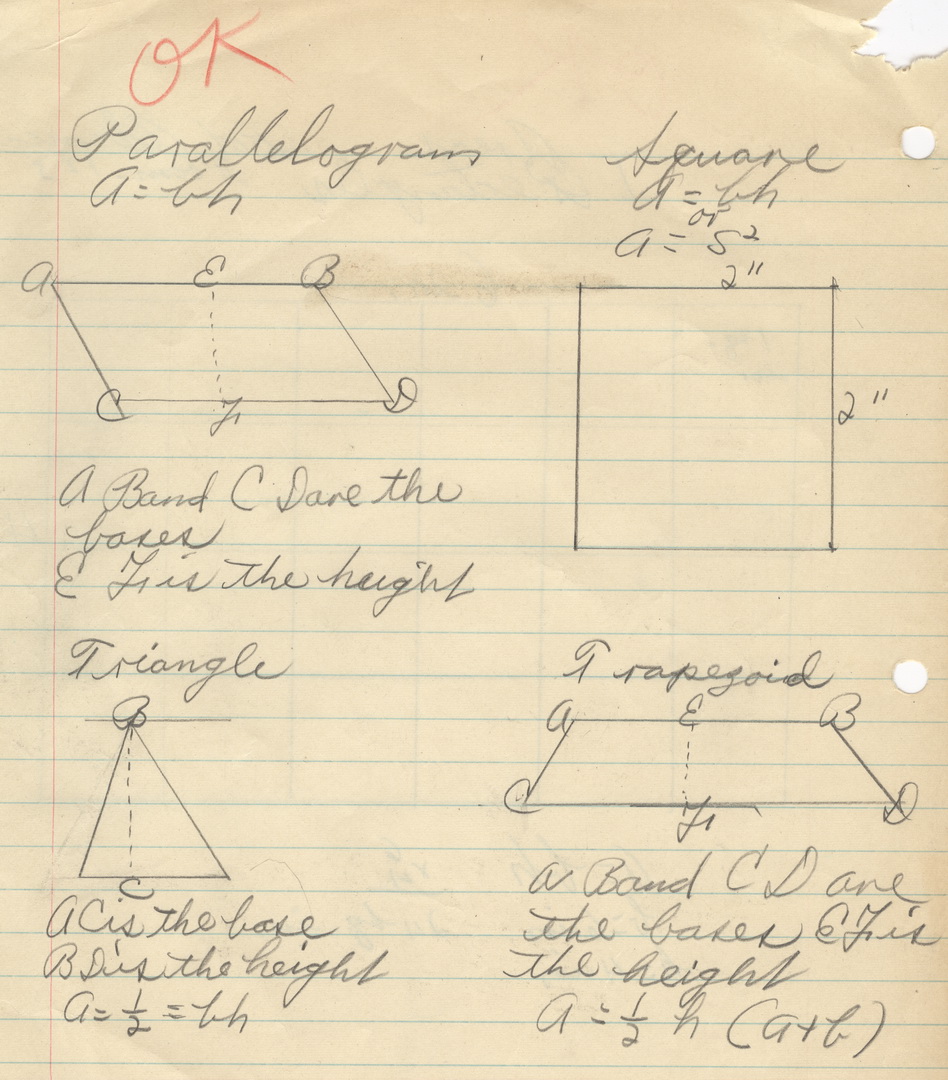 OK
Parallelogram
A = bh
A E B
C F D
A B and C D are the
bases
E F is the height
Square
A = bh
or
A = S²
2"
2"
Triangle
B
C
AC is the base
BD is the height
A = 1/2 = bh
Trapezoid
A E B
C F D
A B and C D are
the bases E F is
the height
A = 1/2 h (a+b)